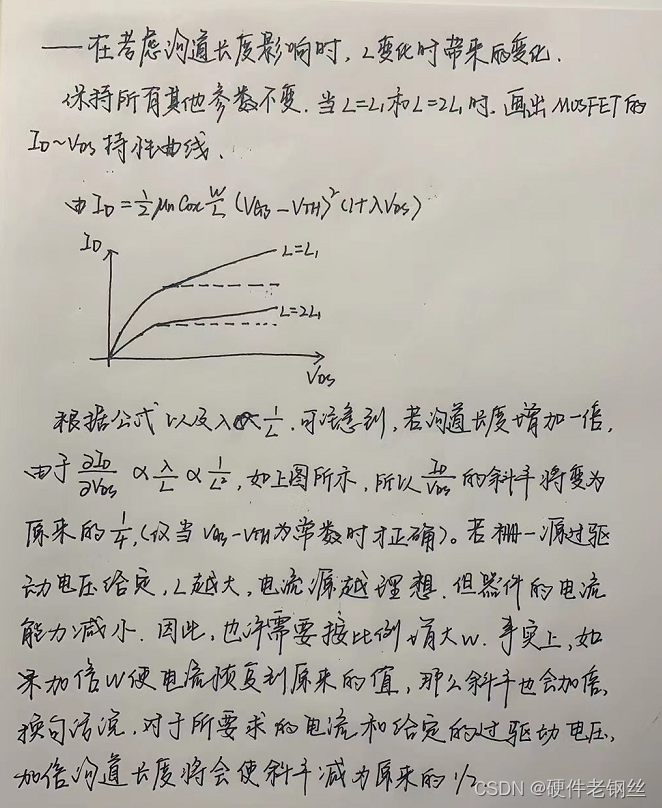 ——在考虑沟道长度影响时，L变化时带来的变化．
保持所有其他参数不变．当L=L₁和L=2L₁时．画出MOSFET的
I_D～V_DS特性曲线．
由I_D=½μnCox W/L (V_GS－V_TH)²(1+λV_DS)
I_D
L=L₁
L=2L₁
V_DS
根据公式以及λ∝1/L．可注意到，若沟道长度增加一倍，
由于∂I_D/∂V_DS ∝ λ/L ∝ 1/L²，如上图所示，所以I_D/V_DS的斜率将变为
原来的1/4，(仅当V_GS－V_TH为常数时才正确)。若栅一源过驱
动电压给定，L越大，电流源越理想．但器件的电流
能力减小．因此，也许需要按比例增大W．事实上，如
果加倍W使电流恢复到原来的值，那么斜率也会加倍，
换句话说，对于所要求的电流和给定的过驱动电压，
加倍沟道长度将会使斜率减为原来的1/2
CSDN @硬件老钢丝